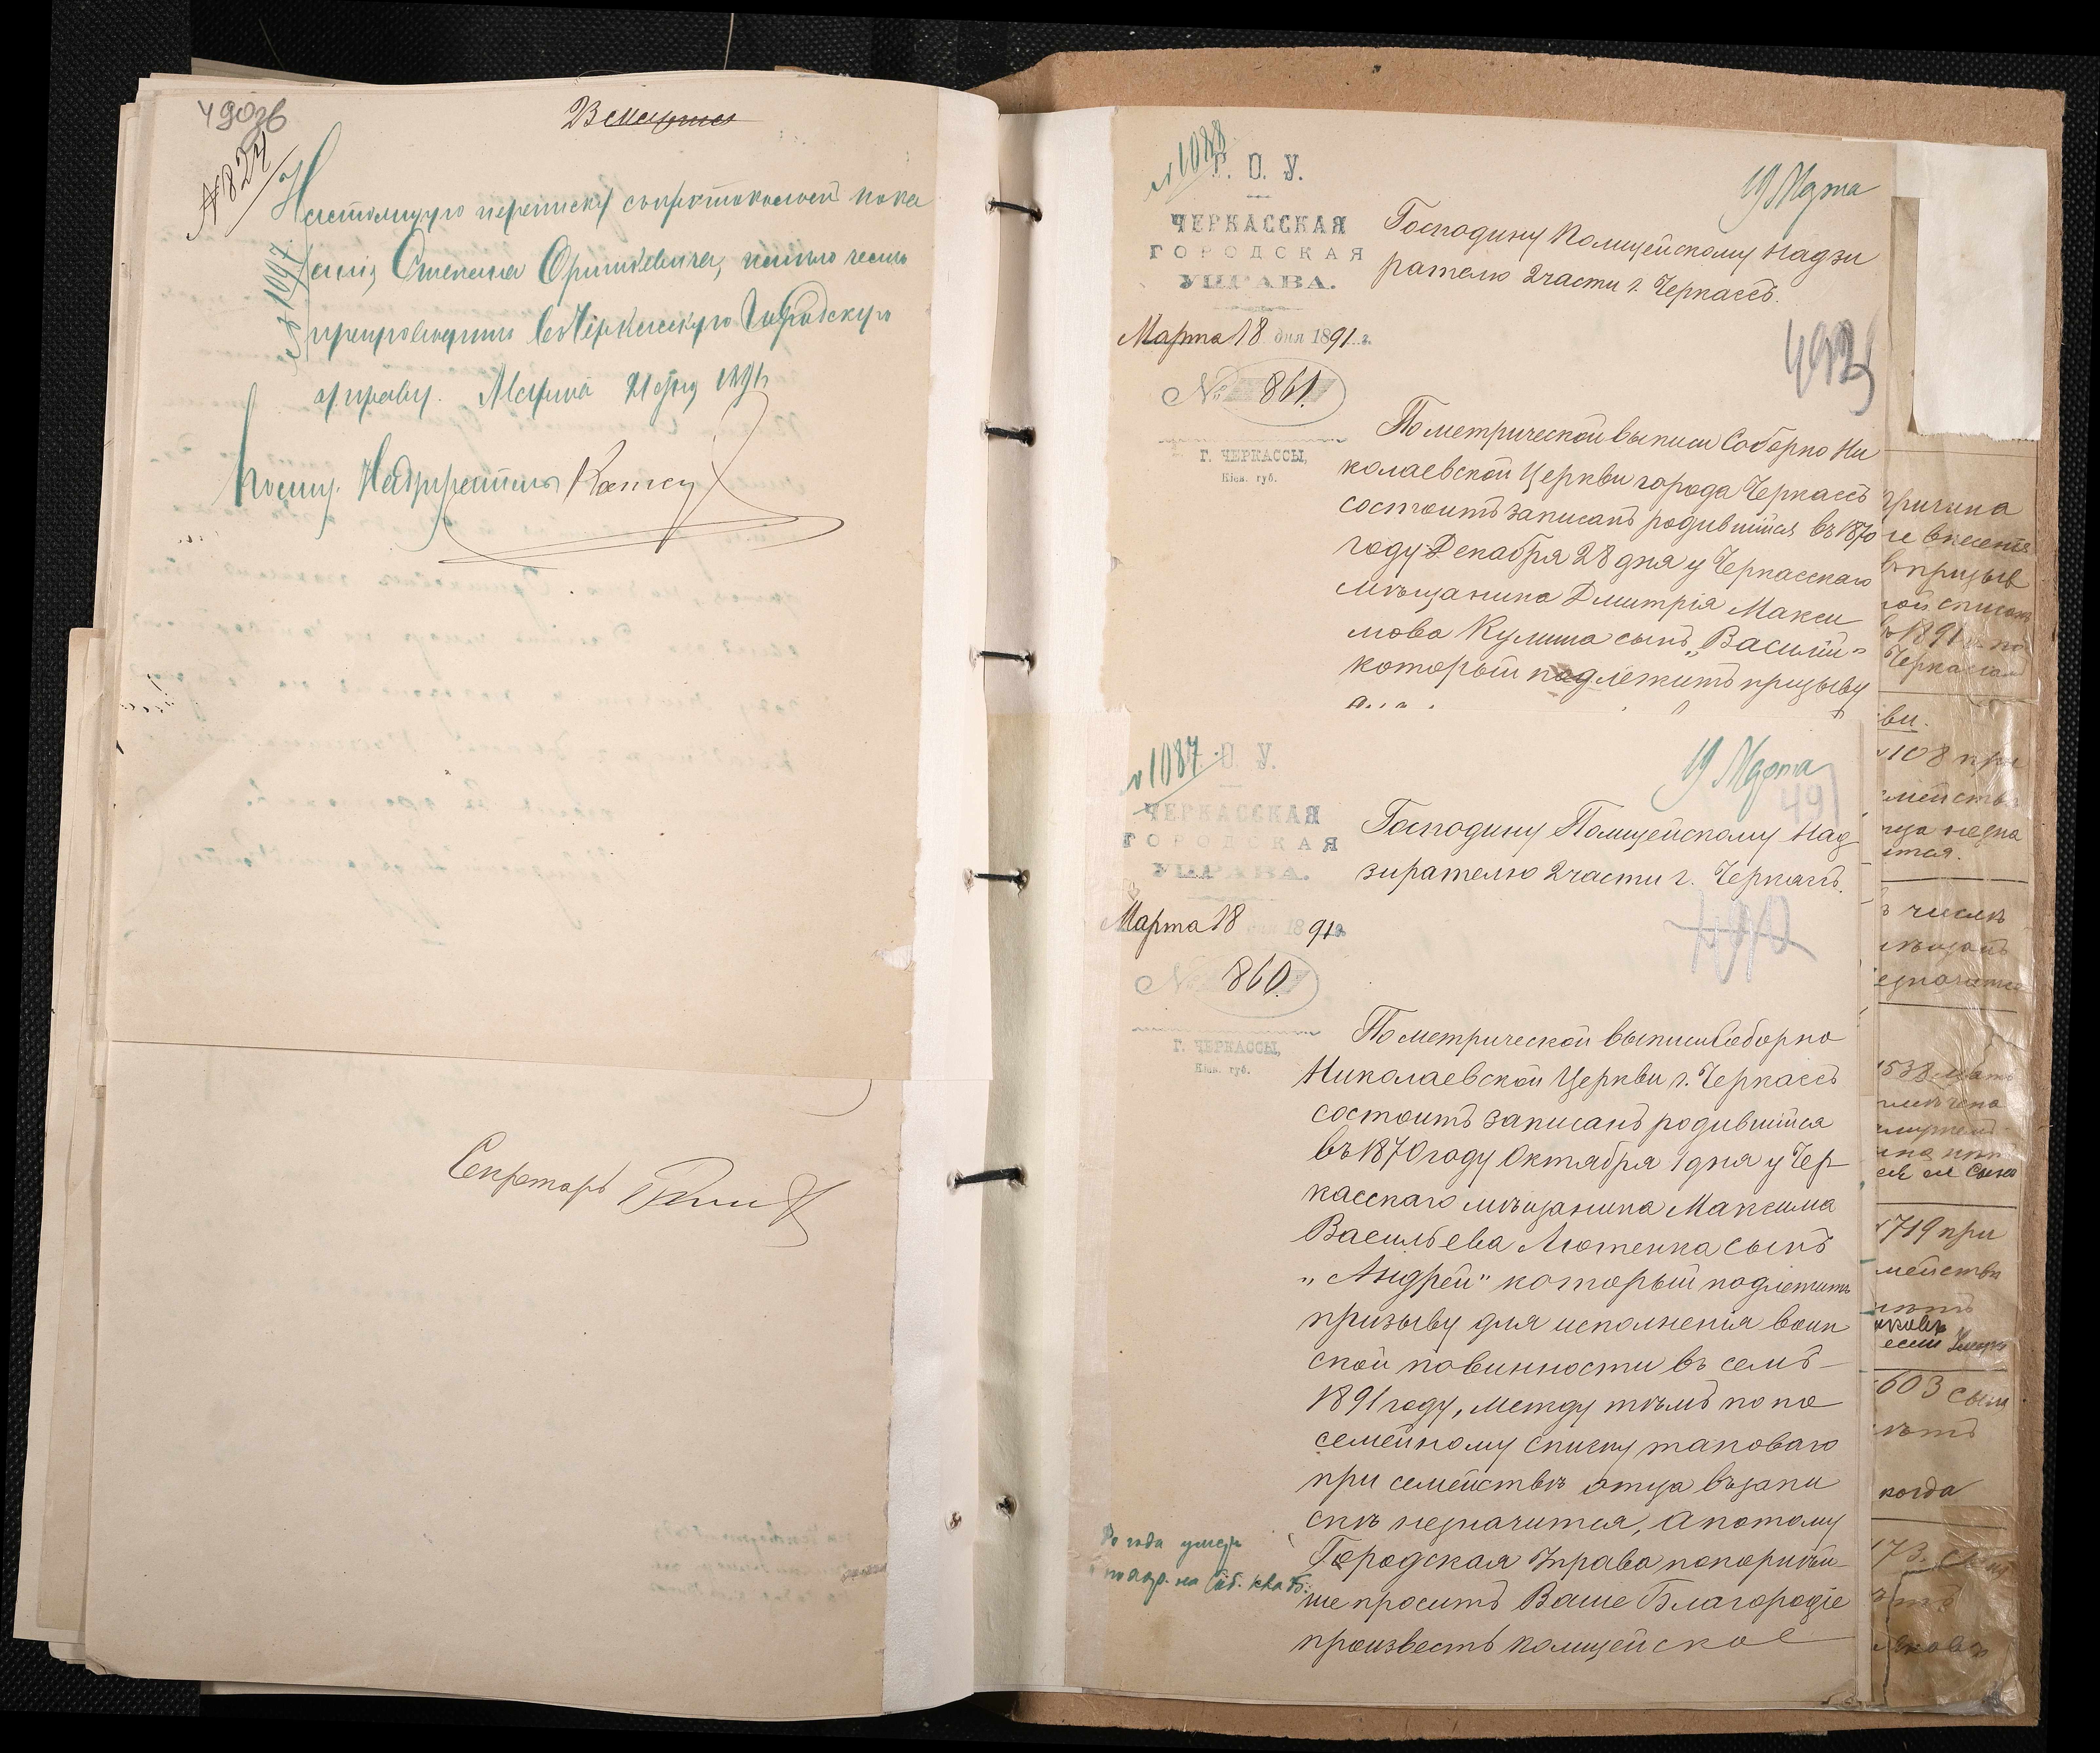 490об
№ 824
Настоящую переписку съ протоколомъ пока
заній Степана
№ 1097
препроводить въ Черкасскую Городскую
управу. Марта 21 дня 1891 г.
Надзиратель
Секретарь
№ 1088
Г. О. У.
ЧЕРКАССКАЯ
ГОРОДСКАЯ
УПРАВА.
Марта 18 дня 1891 г.
№ 861.
Г. ЧЕРКАССЫ,
Кіев. губ.
19 Марта
Господину Полицейскому Надзи
рателю 2 части г. Черкассъ.
492
По метрической выписи Соборно Ни
колаевской Церкви города Черкассъ
состоитъ записанъ родившійся въ 1870
году Декабря 28 дня у Черкасскаго
мѣщанина Дмитрія Макси
мова Кулиша сынъ „Василій"
который подлежитъ призыву
№ 1087
Г. О. У.
ЧЕРКАССКАЯ
ГОРОДСКАЯ
УПРАВА.
Марта 18 дня 1891 г.
№ 860.
Г. ЧЕРКАССЫ,
Кіев. губ.
19 Марта
491
Господину Полицейскому Над
зирателю 2 части г. Черкассъ.
490
По метрической выписи Соборно
Николаевской Церкви г. Черкассъ
состоитъ записанъ родившійся
въ 1870 году Октября 1 дня у Чер
касскаго мѣщанина Максима
Васильева Лютенка сынъ
„Андрей" который подлежитъ
призыву для исполненія воин
ской повинности въ семъ
1891 году, между тѣмъ по по
семейному списку таковаго
при семействѣ отца въ запи
скѣ не значится, а потому
Городская Управа покорнѣй
ше проситъ Ваше Благородіе
произвесть полицейское
До года умеръ
причина
не внесенія
въ призыв
ной списокъ
въ 1891 г. по
108 при
семейства
отца не зна
чится.
въ числѣ
мѣщанъ
не значится
1538
719 при
семейства
603 сына
нѣтъ
когда
173.